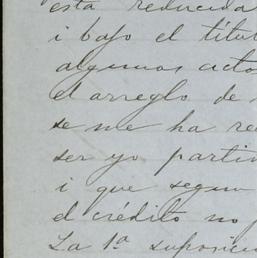 está reducida
i bajo el títul
algunos acto
el arreglo de
se me ha re
ser yo parti
i que segun
el crédito no
La 1ª suposici